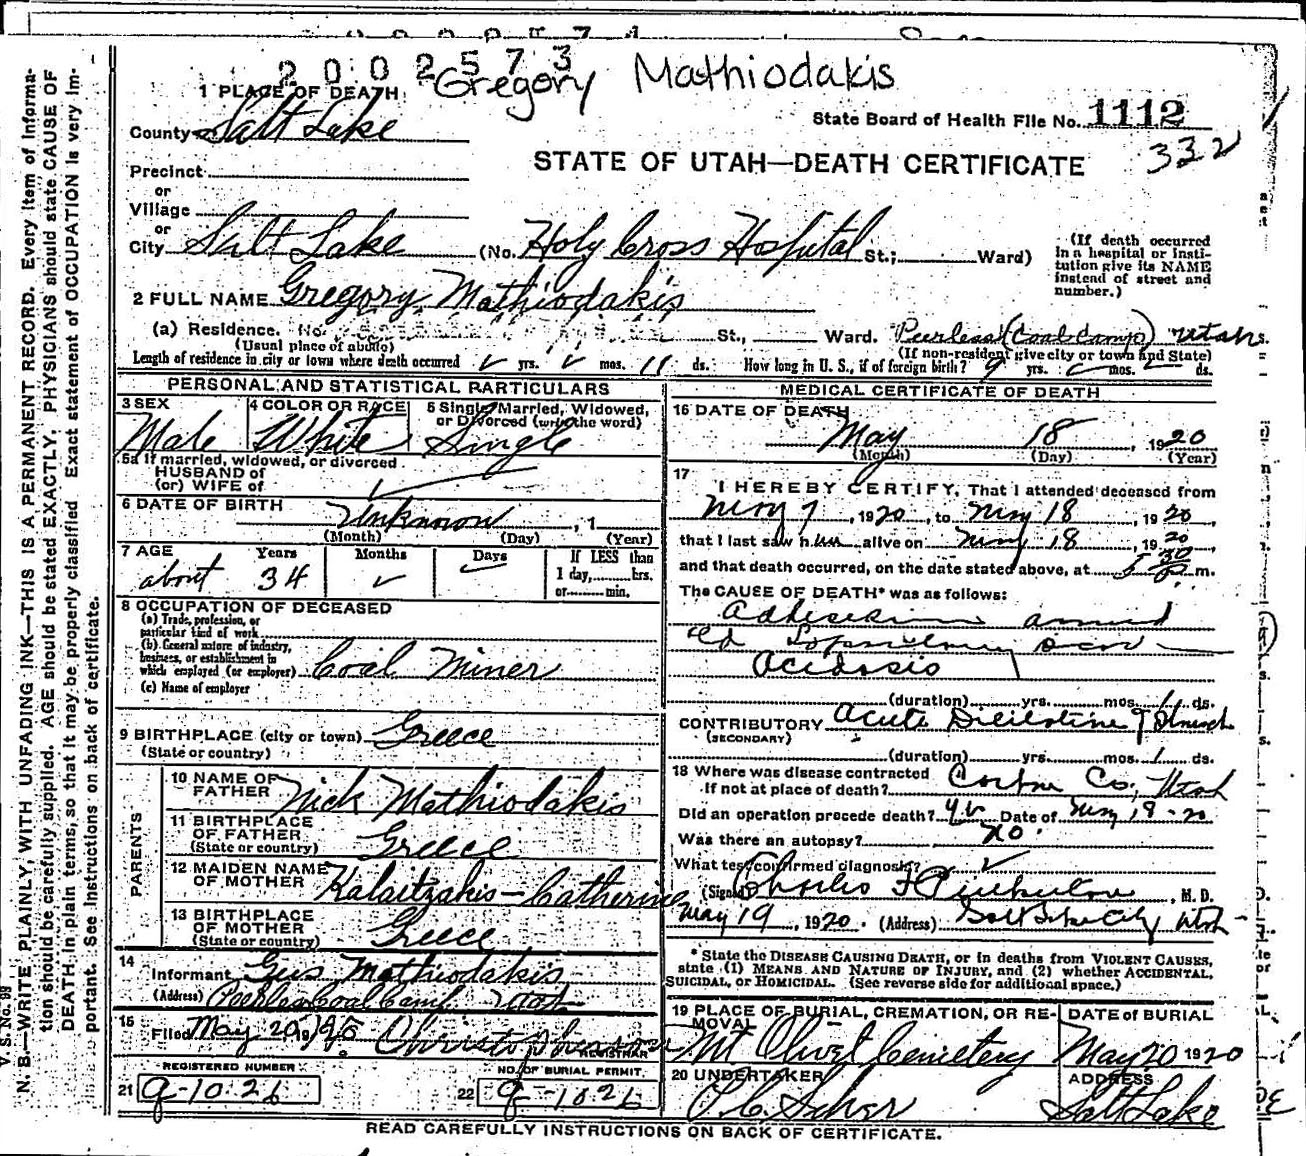 2002573
Gregory Mathiodakis
1 PLACE OF DEATH
County Salt Lake
State Board of Health File No. 1112
332
STATE OF UTAH—DEATH CERTIFICATE
Precinct
or
Village
or
City Salt Lake (No. Holy Cross Hospital St.; Ward)
(If death occurred in a hospital or institution give its NAME instead of street and number.)
2 FULL NAME Gregory Mathiodakis
(a) Residence. No. St., Ward. Peerless (Coal Camp) Utah
(Usual place of abode) (If non-resident give city or town and State)
Length of residence in city or town where death occurred yrs. mos. 11 ds. How long in U. S., if of foreign birth? 9 yrs. mos. ds.
PERSONAL AND STATISTICAL PARTICULARS
3 SEX Male
4 COLOR OR RACE White
5 Single, Married, Widowed, or Divorced (write the word) Single
5a If married, widowed, or divorced
HUSBAND of
(or) WIFE of
6 DATE OF BIRTH Unknown , 1
(Month) (Day) (Year)
7 AGE Years Months Days If LESS than
about 34 1 day, hrs.
or min.
8 OCCUPATION OF DECEASED
(a) Trade, profession, or
particular kind of work
(b) General nature of industry,
business, or establishment in
which employed (or employer) Coal Miner
(c) Name of employer
9 BIRTHPLACE (city or town) Greece
(State or country)
PARENTS
10 NAME OF FATHER Nick Mathiodakis
11 BIRTHPLACE OF FATHER Greece
(State or country)
12 MAIDEN NAME OF MOTHER Kalaitzakis - Catherine
13 BIRTHPLACE OF MOTHER Greece
(State or country)
14
Informant Gus Mathiodakis
(Address) Peerless Coal Camp Utah
15
Filed May 20, REGISTRAR
REGISTERED NUMBER
21 9-1026
NO. OF BURIAL PERMIT.
22 9-1026
MEDICAL CERTIFICATE OF DEATH
16 DATE OF DEATH
May 18, 1920
(Month) (Day) (Year)
17
I HEREBY CERTIFY, That I attended deceased from
May 7, 1920, to May 18, 1920,
that I last saw him alive on May 18, 1920
and that death occurred, on the date stated above, at 5 30 m.
The CAUSE OF DEATH* was as follows:
Acidosis
(duration) yrs. mos. 1 ds.
CONTRIBUTORY Acute
(SECONDARY)
(duration) yrs. mos. 1 ds.
18 Where was disease contracted
If not at place of death? Carbon Co, Utah
Did an operation precede death? Date of May 18-20
Was there an autopsy? no.
What test confirmed diagnosis?
(Signed) Charles F Pinkerton, M. D.
May 19, 1920. (Address) Salt Lake City Utah
* State the DISEASE CAUSING DEATH, or in deaths from VIOLENT CAUSES,
state (1) MEANS AND NATURE OF INJURY, and (2) whether ACCIDENTAL,
SUICIDAL, or HOMICIDAL. (See reverse side for additional space.)
19 PLACE OF BURIAL, CREMATION, OR REMOVAL
Mt Olivet Cemetery
DATE of BURIAL
May 20 1920
20 UNDERTAKER
ADDRESS
Salt Lake
READ CAREFULLY INSTRUCTIONS ON BACK OF CERTIFICATE.
V. S. No. 99
N. B.—WRITE PLAINLY, WITH UNFADING INK—THIS IS A PERMANENT RECORD. Every item of information should be carefully supplied. AGE should be stated EXACTLY. PHYSICIANS should state CAUSE OF
DEATH in plain terms, so that it may be properly classified. Exact statement of OCCUPATION is very important. See Instructions on back of certificate.